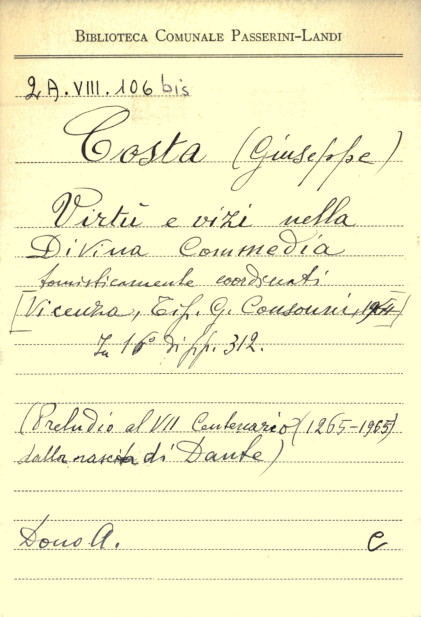 BIBLIOTECA COMUNALE PASSERINI-LANDI
2A.VIII.106 bis
Costa (Giuseppe)
Virtù e vizi nella
Divina Commedia
tomisticamente coordinati
[Vicenza, Tip. G. Consonni, 1964]
In 16° di pp. 312.
(Preludio al VII Centenario (1265-1965)
dalla nascita di Dante)
Dono A. C